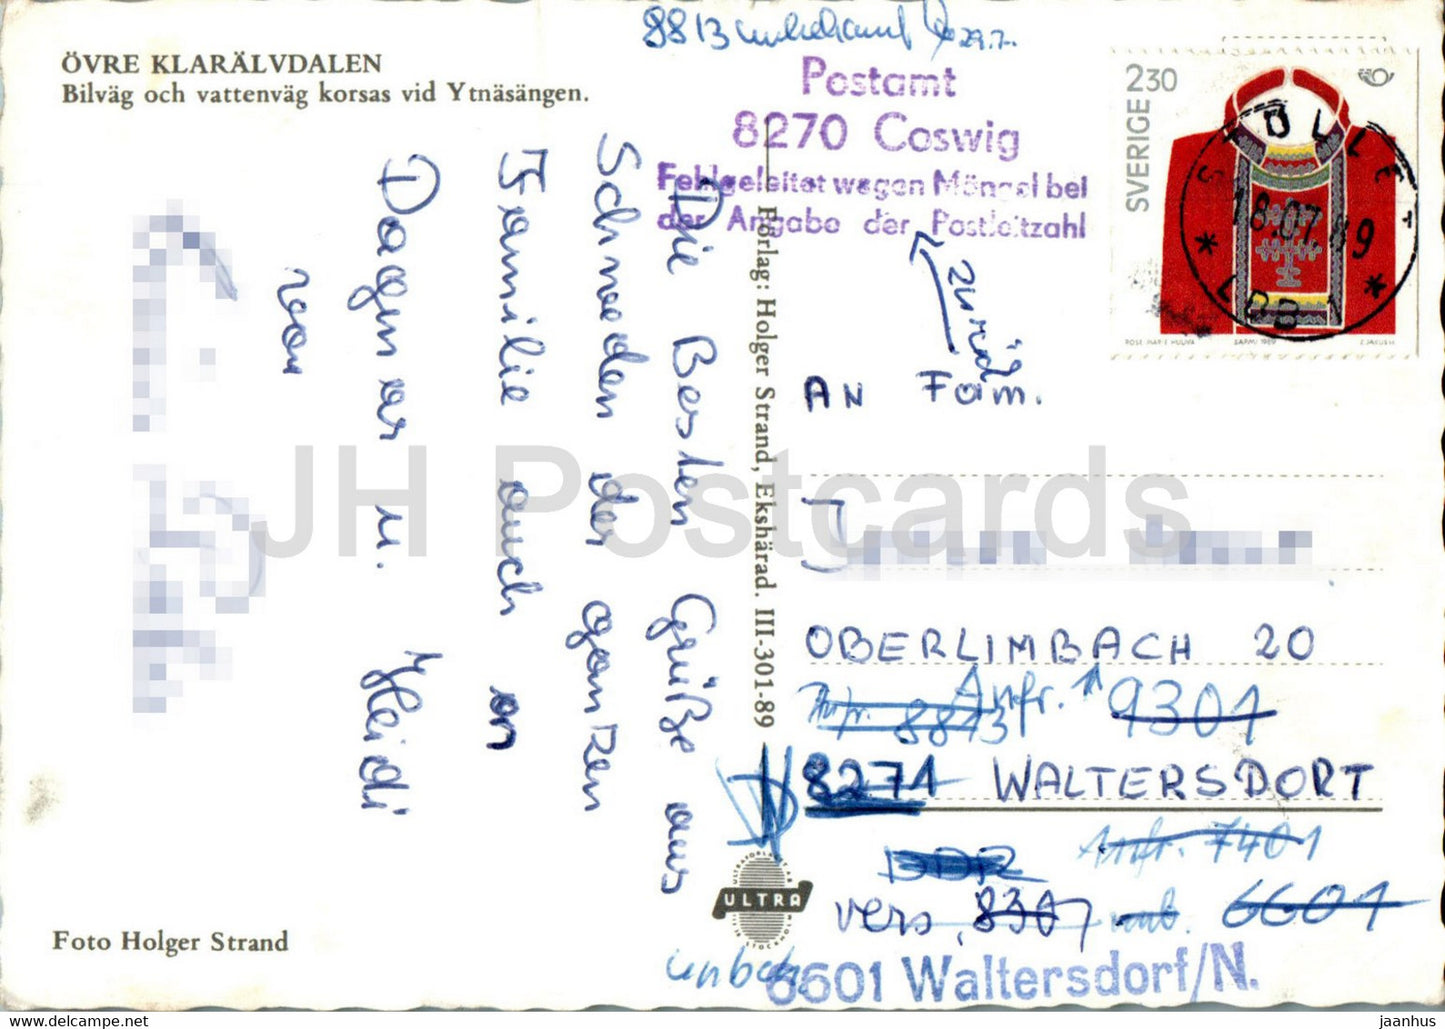 8813 unbekannt 29.7.
ÖVRE KLARÄLVDALEN
Bilväg och vattenväg korsas vid Ytnäsängen.
Postamt
8270 Coswig
Fehlgeleitet wegen Mängel bei
der Angabe der Postleitzahl
zurück
SVERIGE 230
ROSE-MARIE HUUVA SÁPMI 1989
18.07.89
LBB 1
Die Besten Grüße aus
Schweden der ganzen
Familie auch on
Dagmar u. Heidi
von
Förlag: Holger Strand, Ekshärad. III-301-89
AN Fam.
OBERLIMBACH 20
Anfr. 8813 Anfr. 9301
8271 WALTERSDORT
DDR Anfr. 7401
vers. 8307 unb. 6601
ULTRA
Foto Holger Strand
unbek.
6601 Waltersdorf/N.
JH Postcards
jaanhus